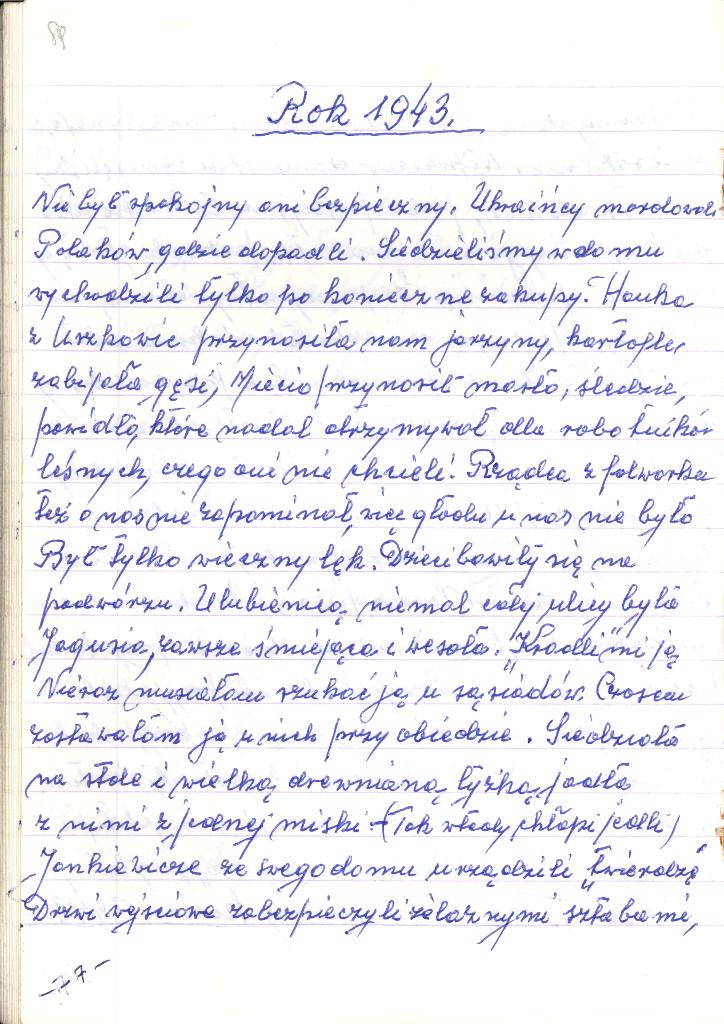 Rok 1943.
Nie był spokojny ani bezpieczny. Ukraińcy mordowali
Polaków, gdzie dopadli. Siedzieliśmy w domu
wychodzili tylko po konieczne zakupy. Hanka
z Uszkowic przynosiła nam jarzyny, kartofle,
zabijała gęsi, Miecio przynosił masło, śledzie,
powidło, które nadal otrzymywał dla robotników
leśnych, czego oni nie chcieli. Rządca z folwarku
też o nas nie zapominał, więc głodu u nas nie było
Był tylko wieczny lęk. Dzieci bawiły się na
podwórzu. Ulubienicą niemal całej ulicy była
Jagusia, zawsze śmiejąca i wesoła. "Kradli" mi ją
Nieraz musiałam szukać ją u sąsiadów. Czasem
zastawałam ją u nich przy obiedzie. Siedziała
na stole i wielką drewnianą łyżką jadła
z nimi z jednej miski. (Tak wtedy chłopi jedli)
Jankiewicze ze swego domu urządzili "twierdzę"
Drzwi wyjściowe zabezpieczyli żelaznymi sztabami,
-77-